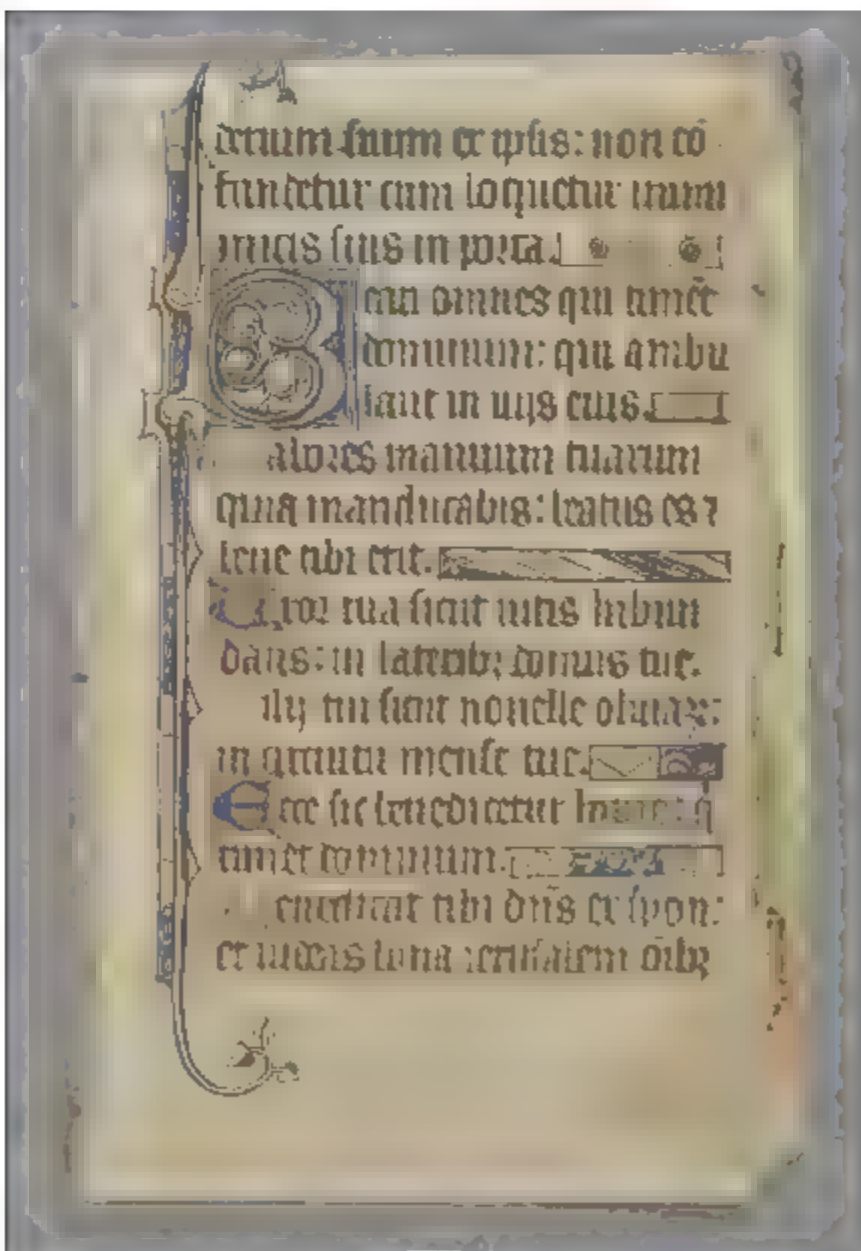 derium suum ex ipsis: non cō
fundetur cum loquetur inimi
micis suis in porta.
Beati omnes qui timēt
dominum: qui ambu
lant in uijs eius.
abores manuum tuarum
quia manducabis: beatus es ⁊
bene tibi erit.
Uxor tua sicut uitis habun
dans: in lateribꝫ domus tue.
ilij tui sicut nouelle oliuaꝝ:
in circuitu mense tue.
Ecce sic benedicetur homo: q̇
timet dominum.
enedicat tibi dn̄s ex syon:
et uideas bona ierusalem oībꝫ